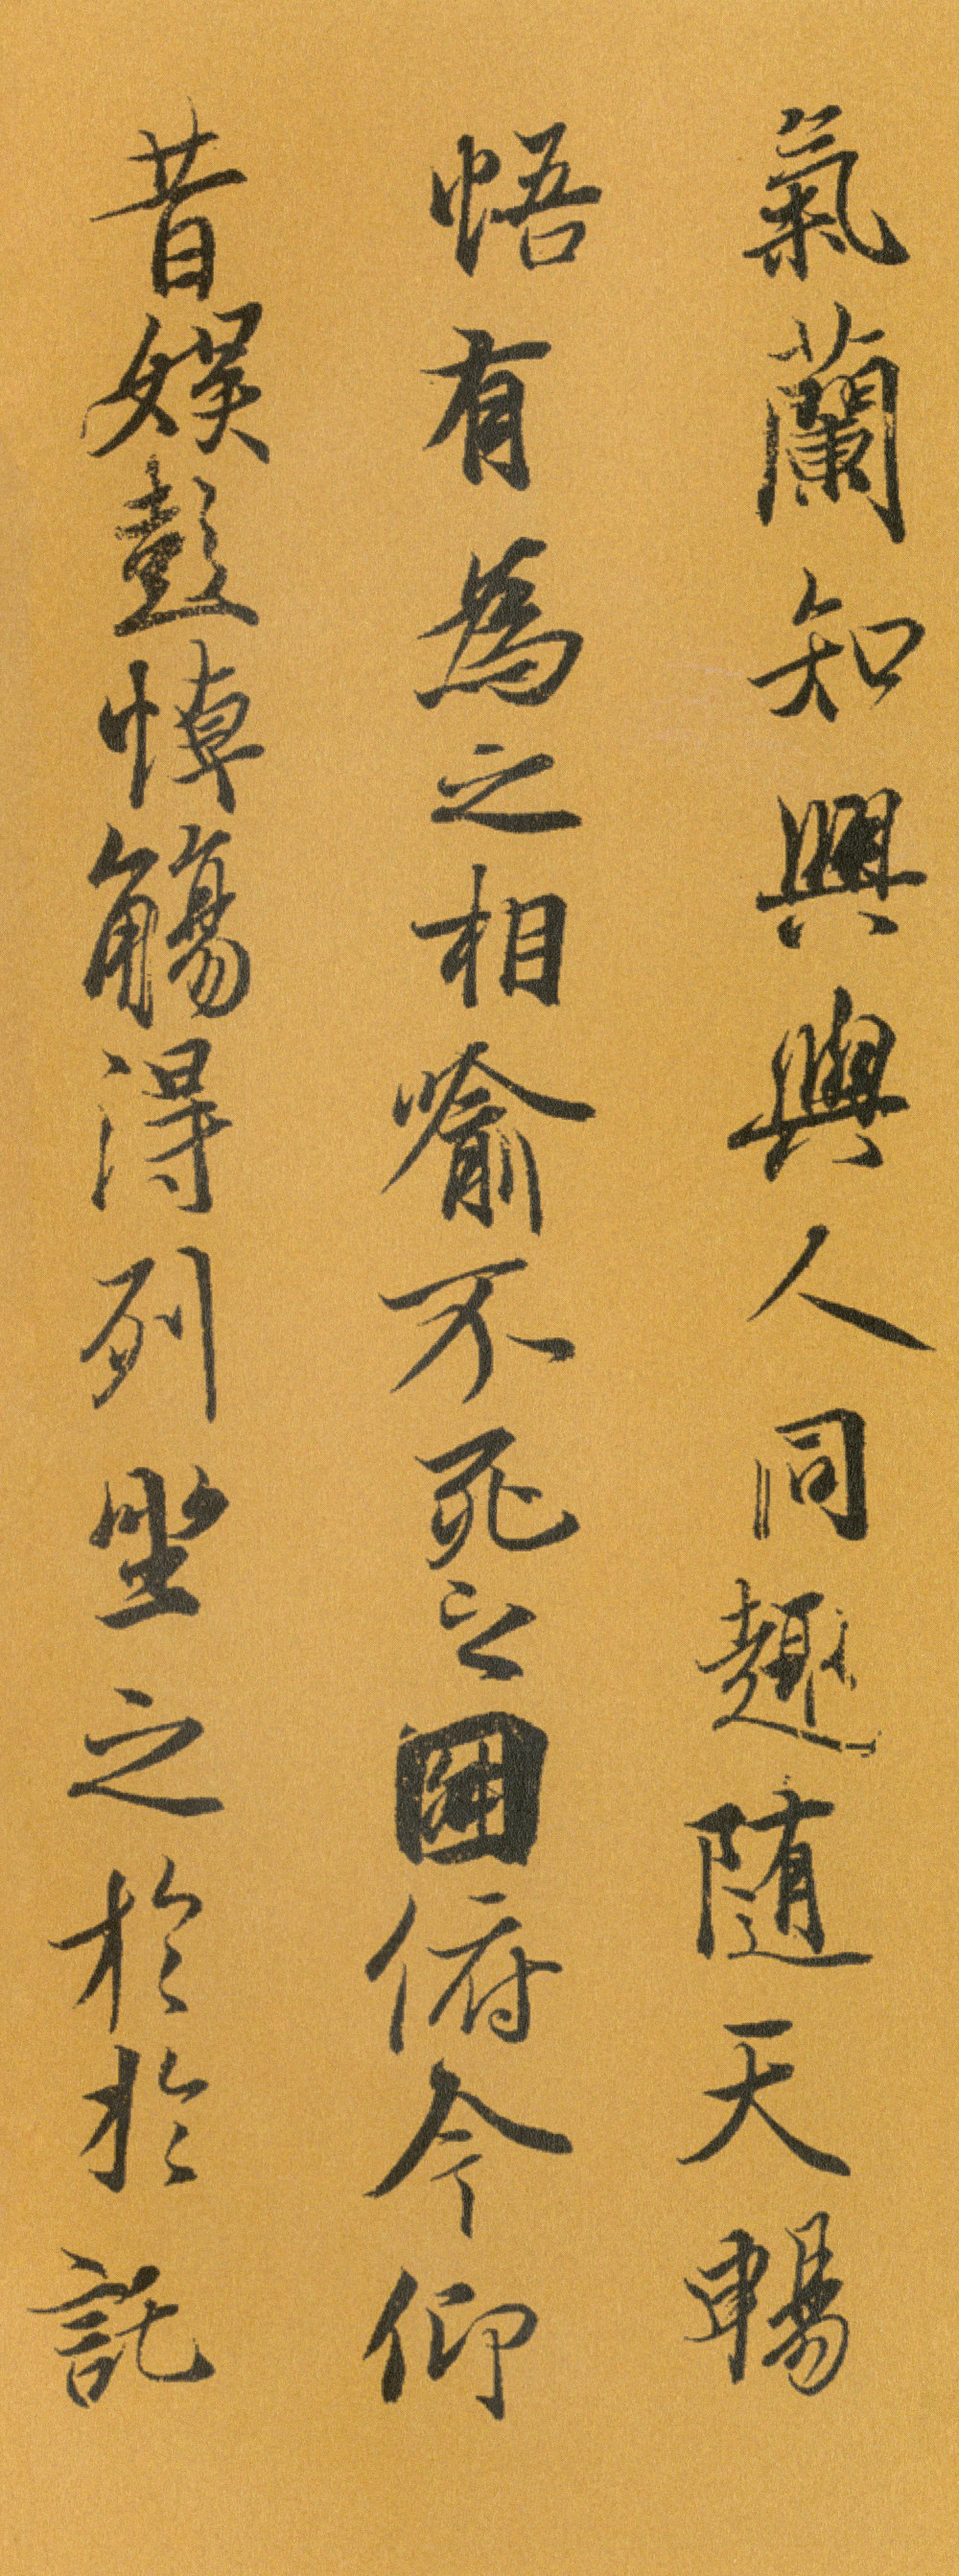 氣蘭知興與人同趣随天暢
悟有為之相喻不死之因俯今仰
昔娛彭悼觴得列坐之於於託